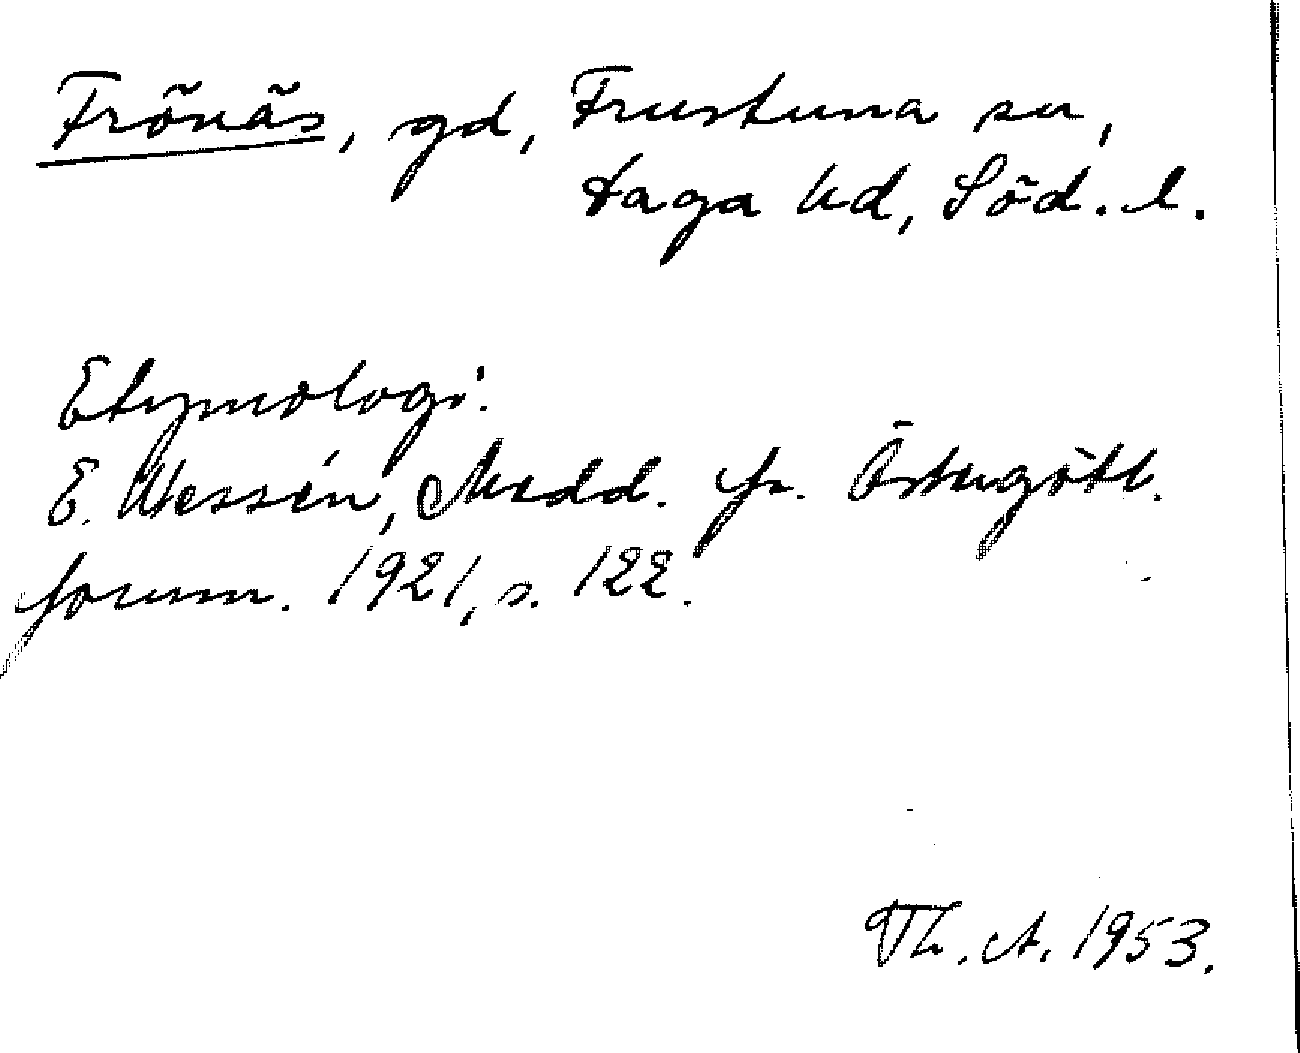 Frönäs, gd, Frustuna sn,
Daga hd, Söd. l.
Etymologi:
E. Wessén, Medd. fr. Östergötl.
fornm. 1921, s. 122.
Th. A. 1953.